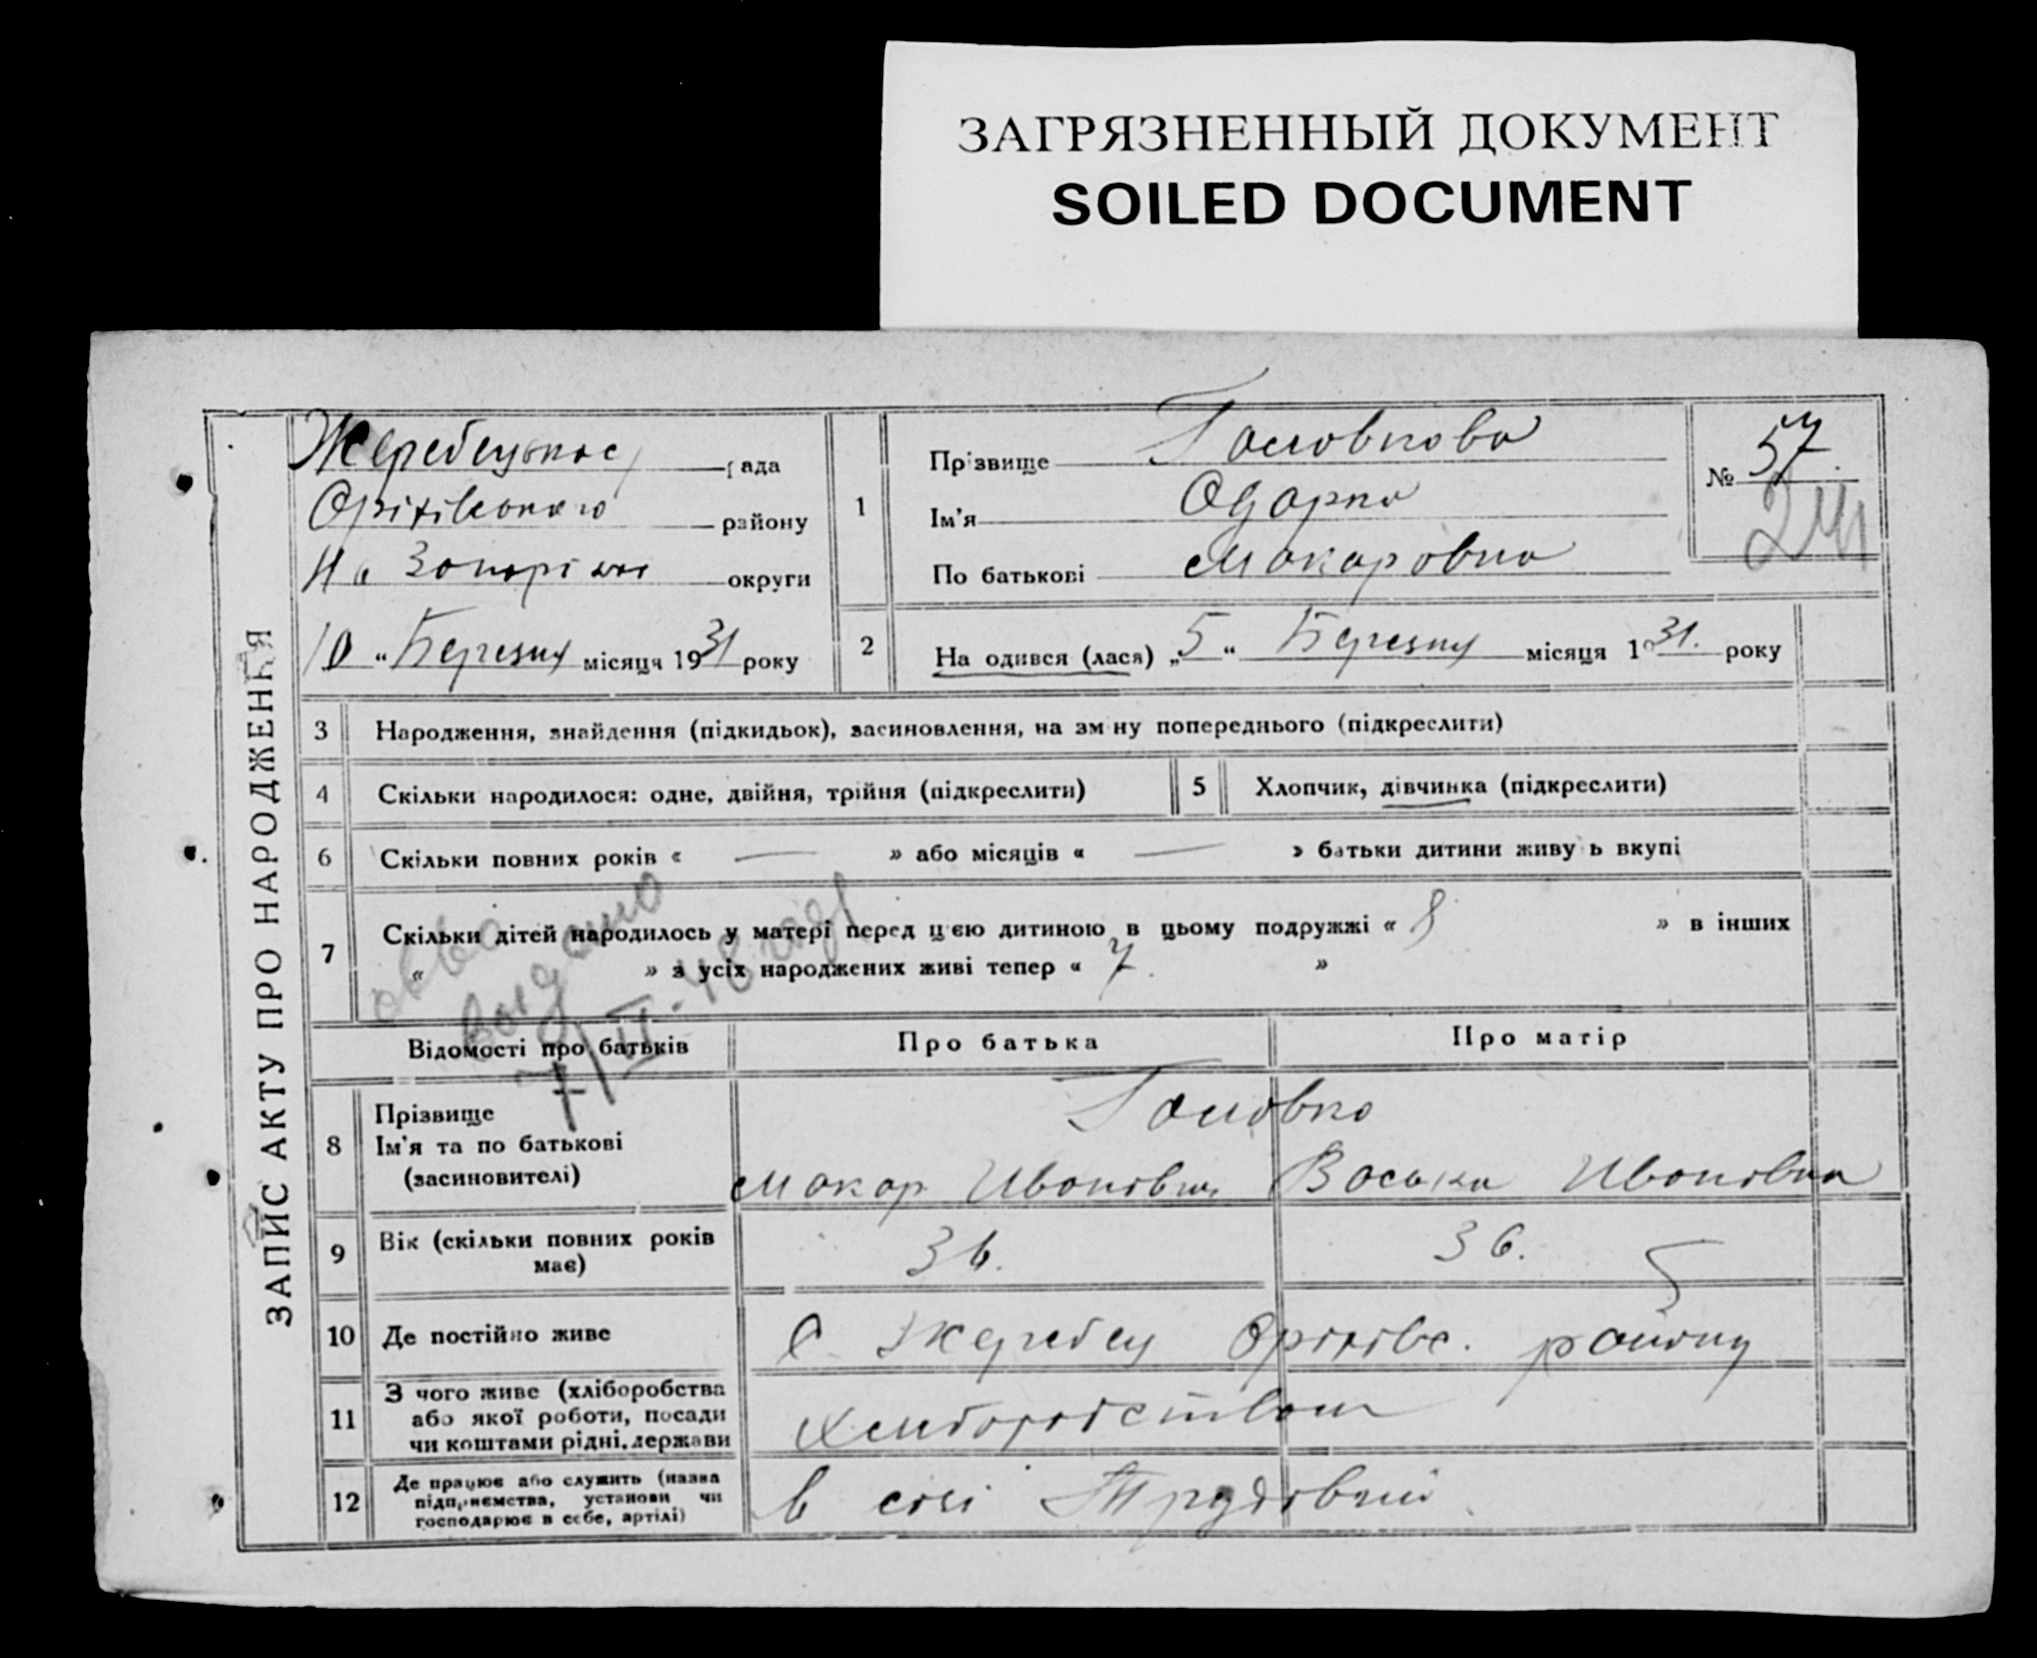 ЗАГРЯЗНЕННЫЙ ДОКУМЕНТ
SOILED DOCUMENT
ЗАПИС АКТУ ПРО НАРОДЖЕННЯ
Жеребецькос рада
Оріхівського району
На Запоріжжі округи
10 “ Березня місяця 1931 року
1
Прізвище Головкова
Ім'я Одарка
По батькові Макаровна
№ 57.
24
2
На одився (лася) „5“ Березня місяця 1931. року
3 Народження, знайдення (підкидьок), засиновлення, на зм ну попереднього (підкреслити)
4 Скільки народилося: одне, двійня, трійня (підкреслити)
5 Хлопчик, дівчинка (підкреслити)
6 Скільки повних років « — » або місяців « — » батьки дитини живу ь вкупі
7 Скільки дітей народилось у матері перед цією дитиною в цьому подружжі « 8 » в інших
« » з усіх народжених живі тепер « 7. »
выдано
7/II-48 года
Відомості про батьків
Про батька
Про матір
8 Прізвище
Ім'я та по батькові
(засиновителі)
Головко
Макар Иванович Васька Ивановна
9 Вік (скільки повних років
має)
36. 36.
10 Де постійно живе
С. Жеребец Оріхівс. району
11 З чого живе (хліборобства
або якої роботи, посади
чи коштами рідні, держави
Хліборобством
12 Де працює або служить (назва
підприємства, установи чи
господарює в себе, артілі)
в созі Трудовий